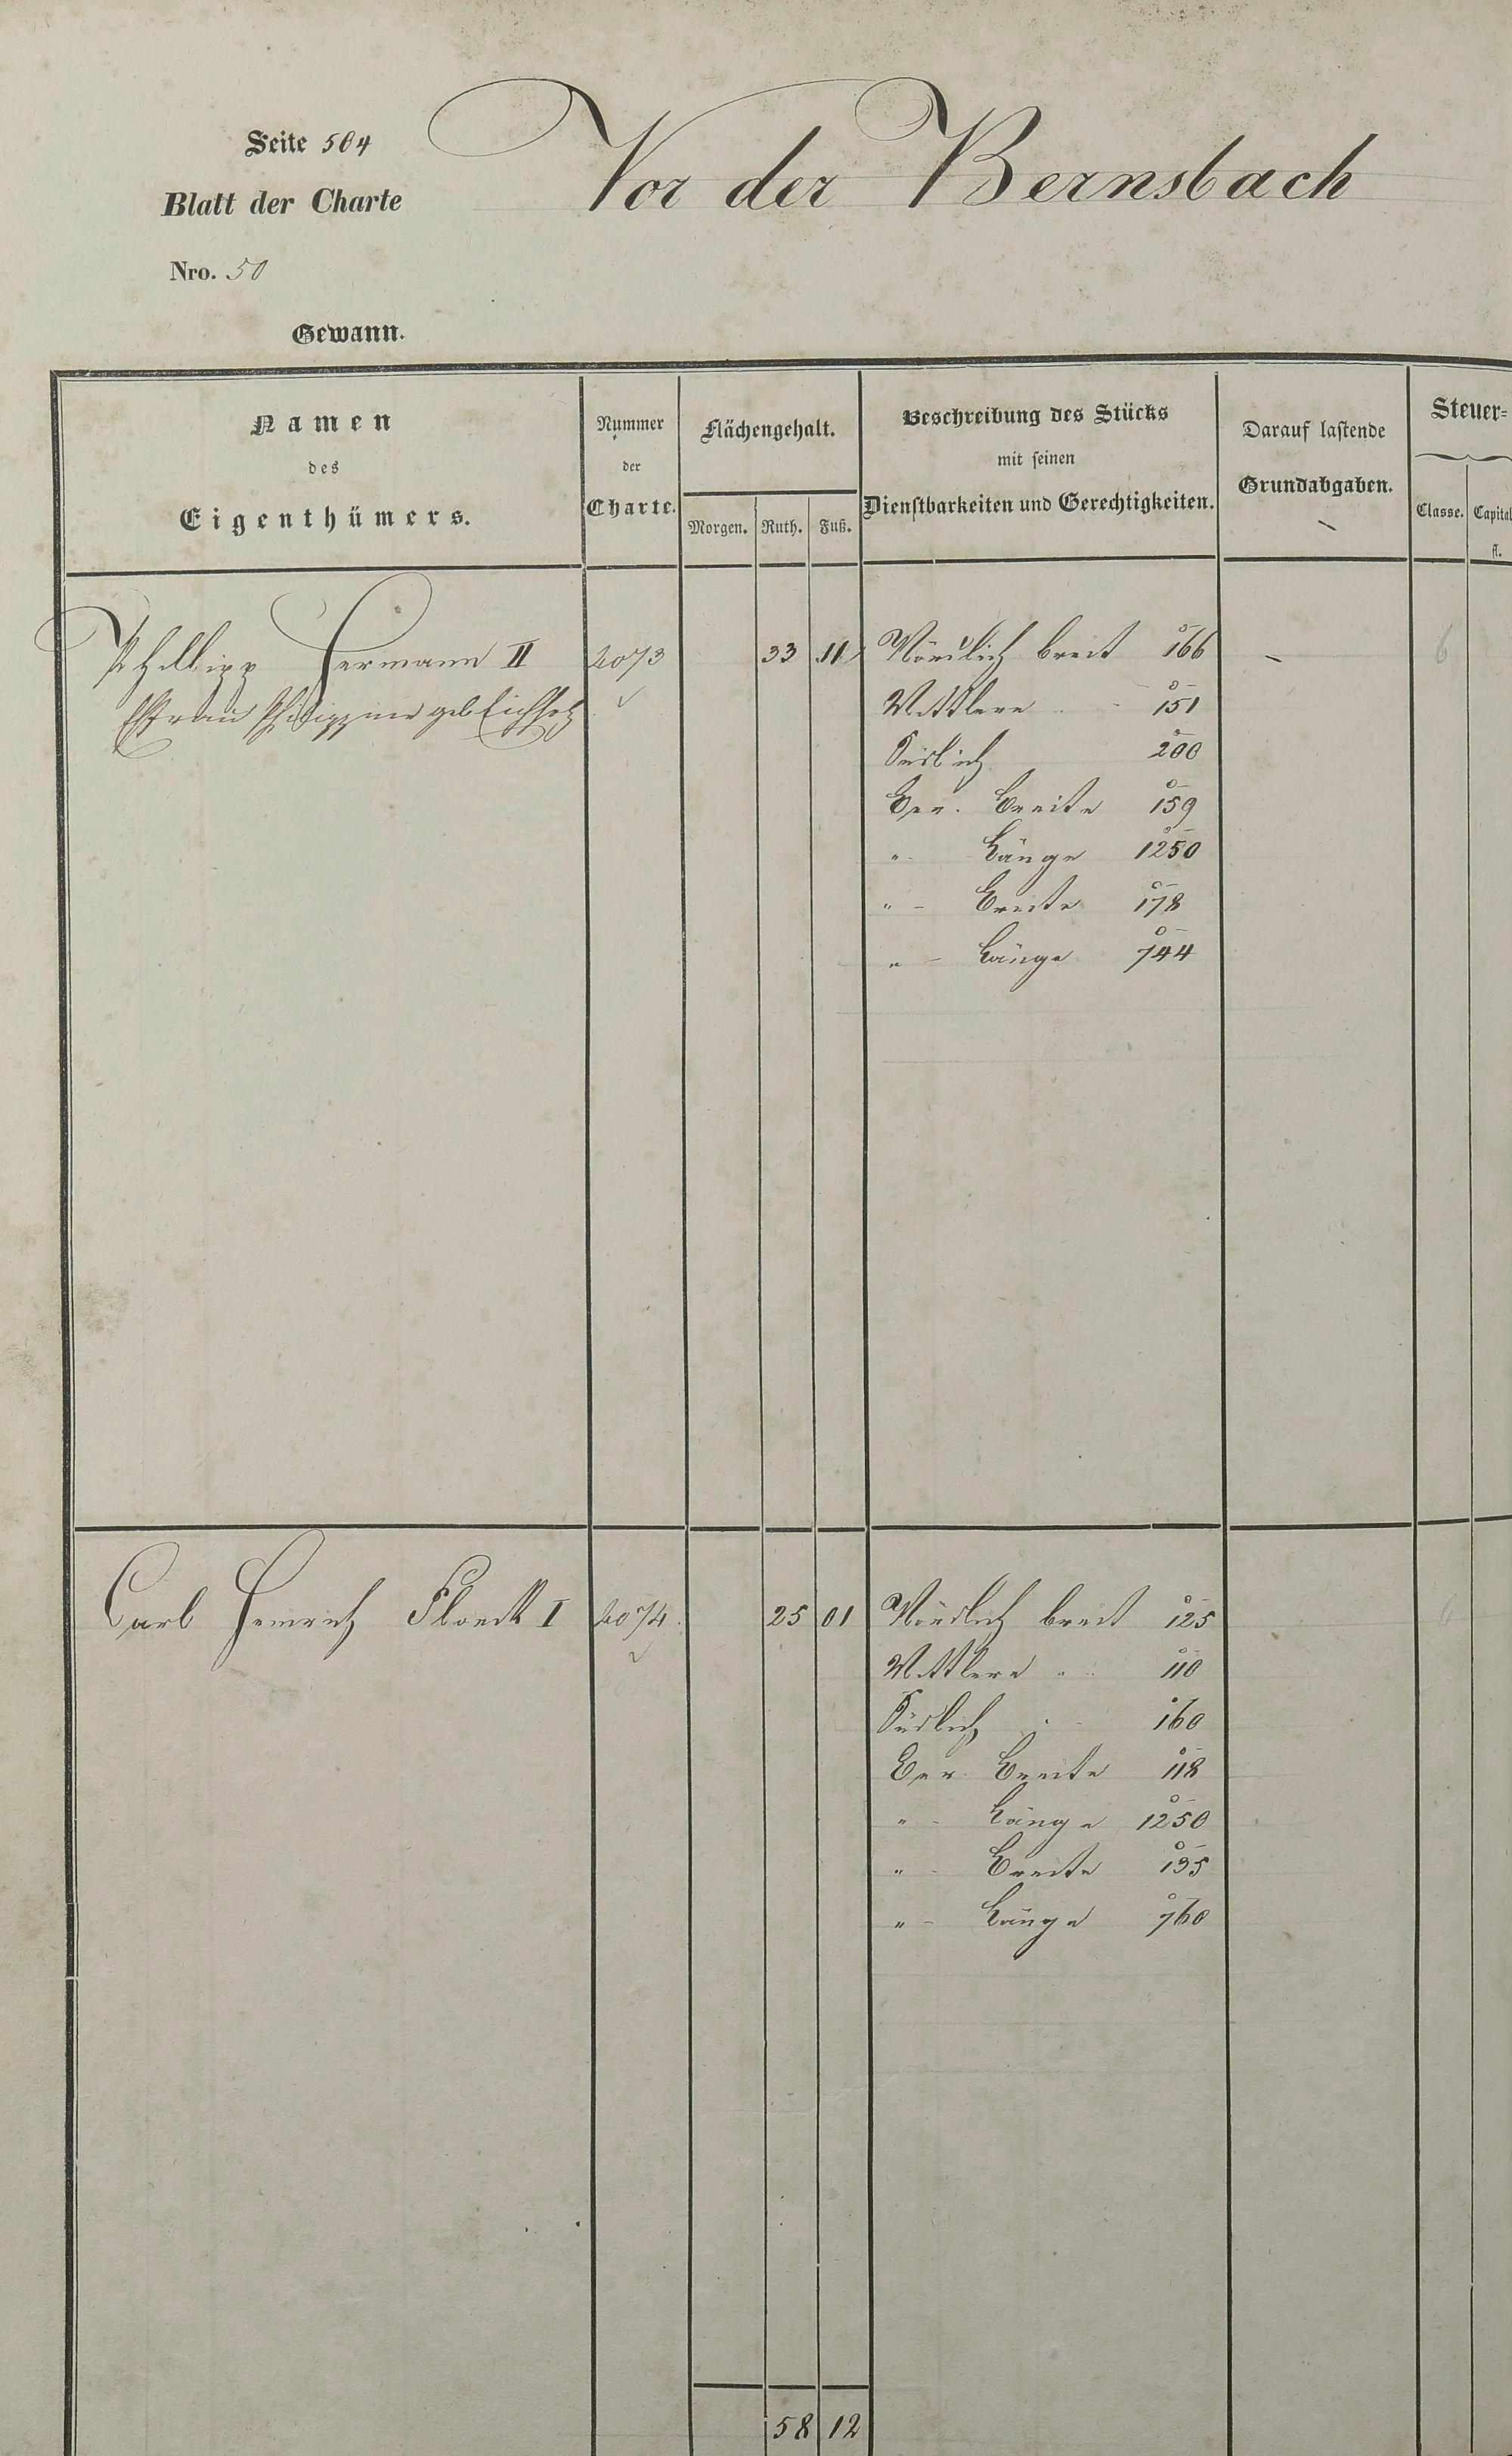 Seite 504
Vor der Bernsbach
Blatt der Charte
Nro. 50
Gewann.
Namen
des
Eigenthümers.
Nummer
der
Charte.
Flächengehalt.
Morgen. Ruth. Fuß.
Beschreibung des Stücks
mit seinen
Dienstbarkeiten und Gerechtigkeiten.
Darauf lastende
Grundabgaben.
Steuer-
Classe. Capital
fl.
Phillipp Hermann II 2073 33 11 Nördlich breit 166 – 6
Ehfrau Philippine geb Eichholz
Mittlere " - 151
Südlich 200
Ber. Breite 159
" - Länge 1250
" - Breite 178
" - Länge 744
Carl Heinrich Floeck I 2074 25 01 Nördlich breit 125 6
Mittlere " - 110
Südlich " - 160
Ber. Breite 118
" - Länge 1250
" - Breite 135
" - Länge 760
58 12